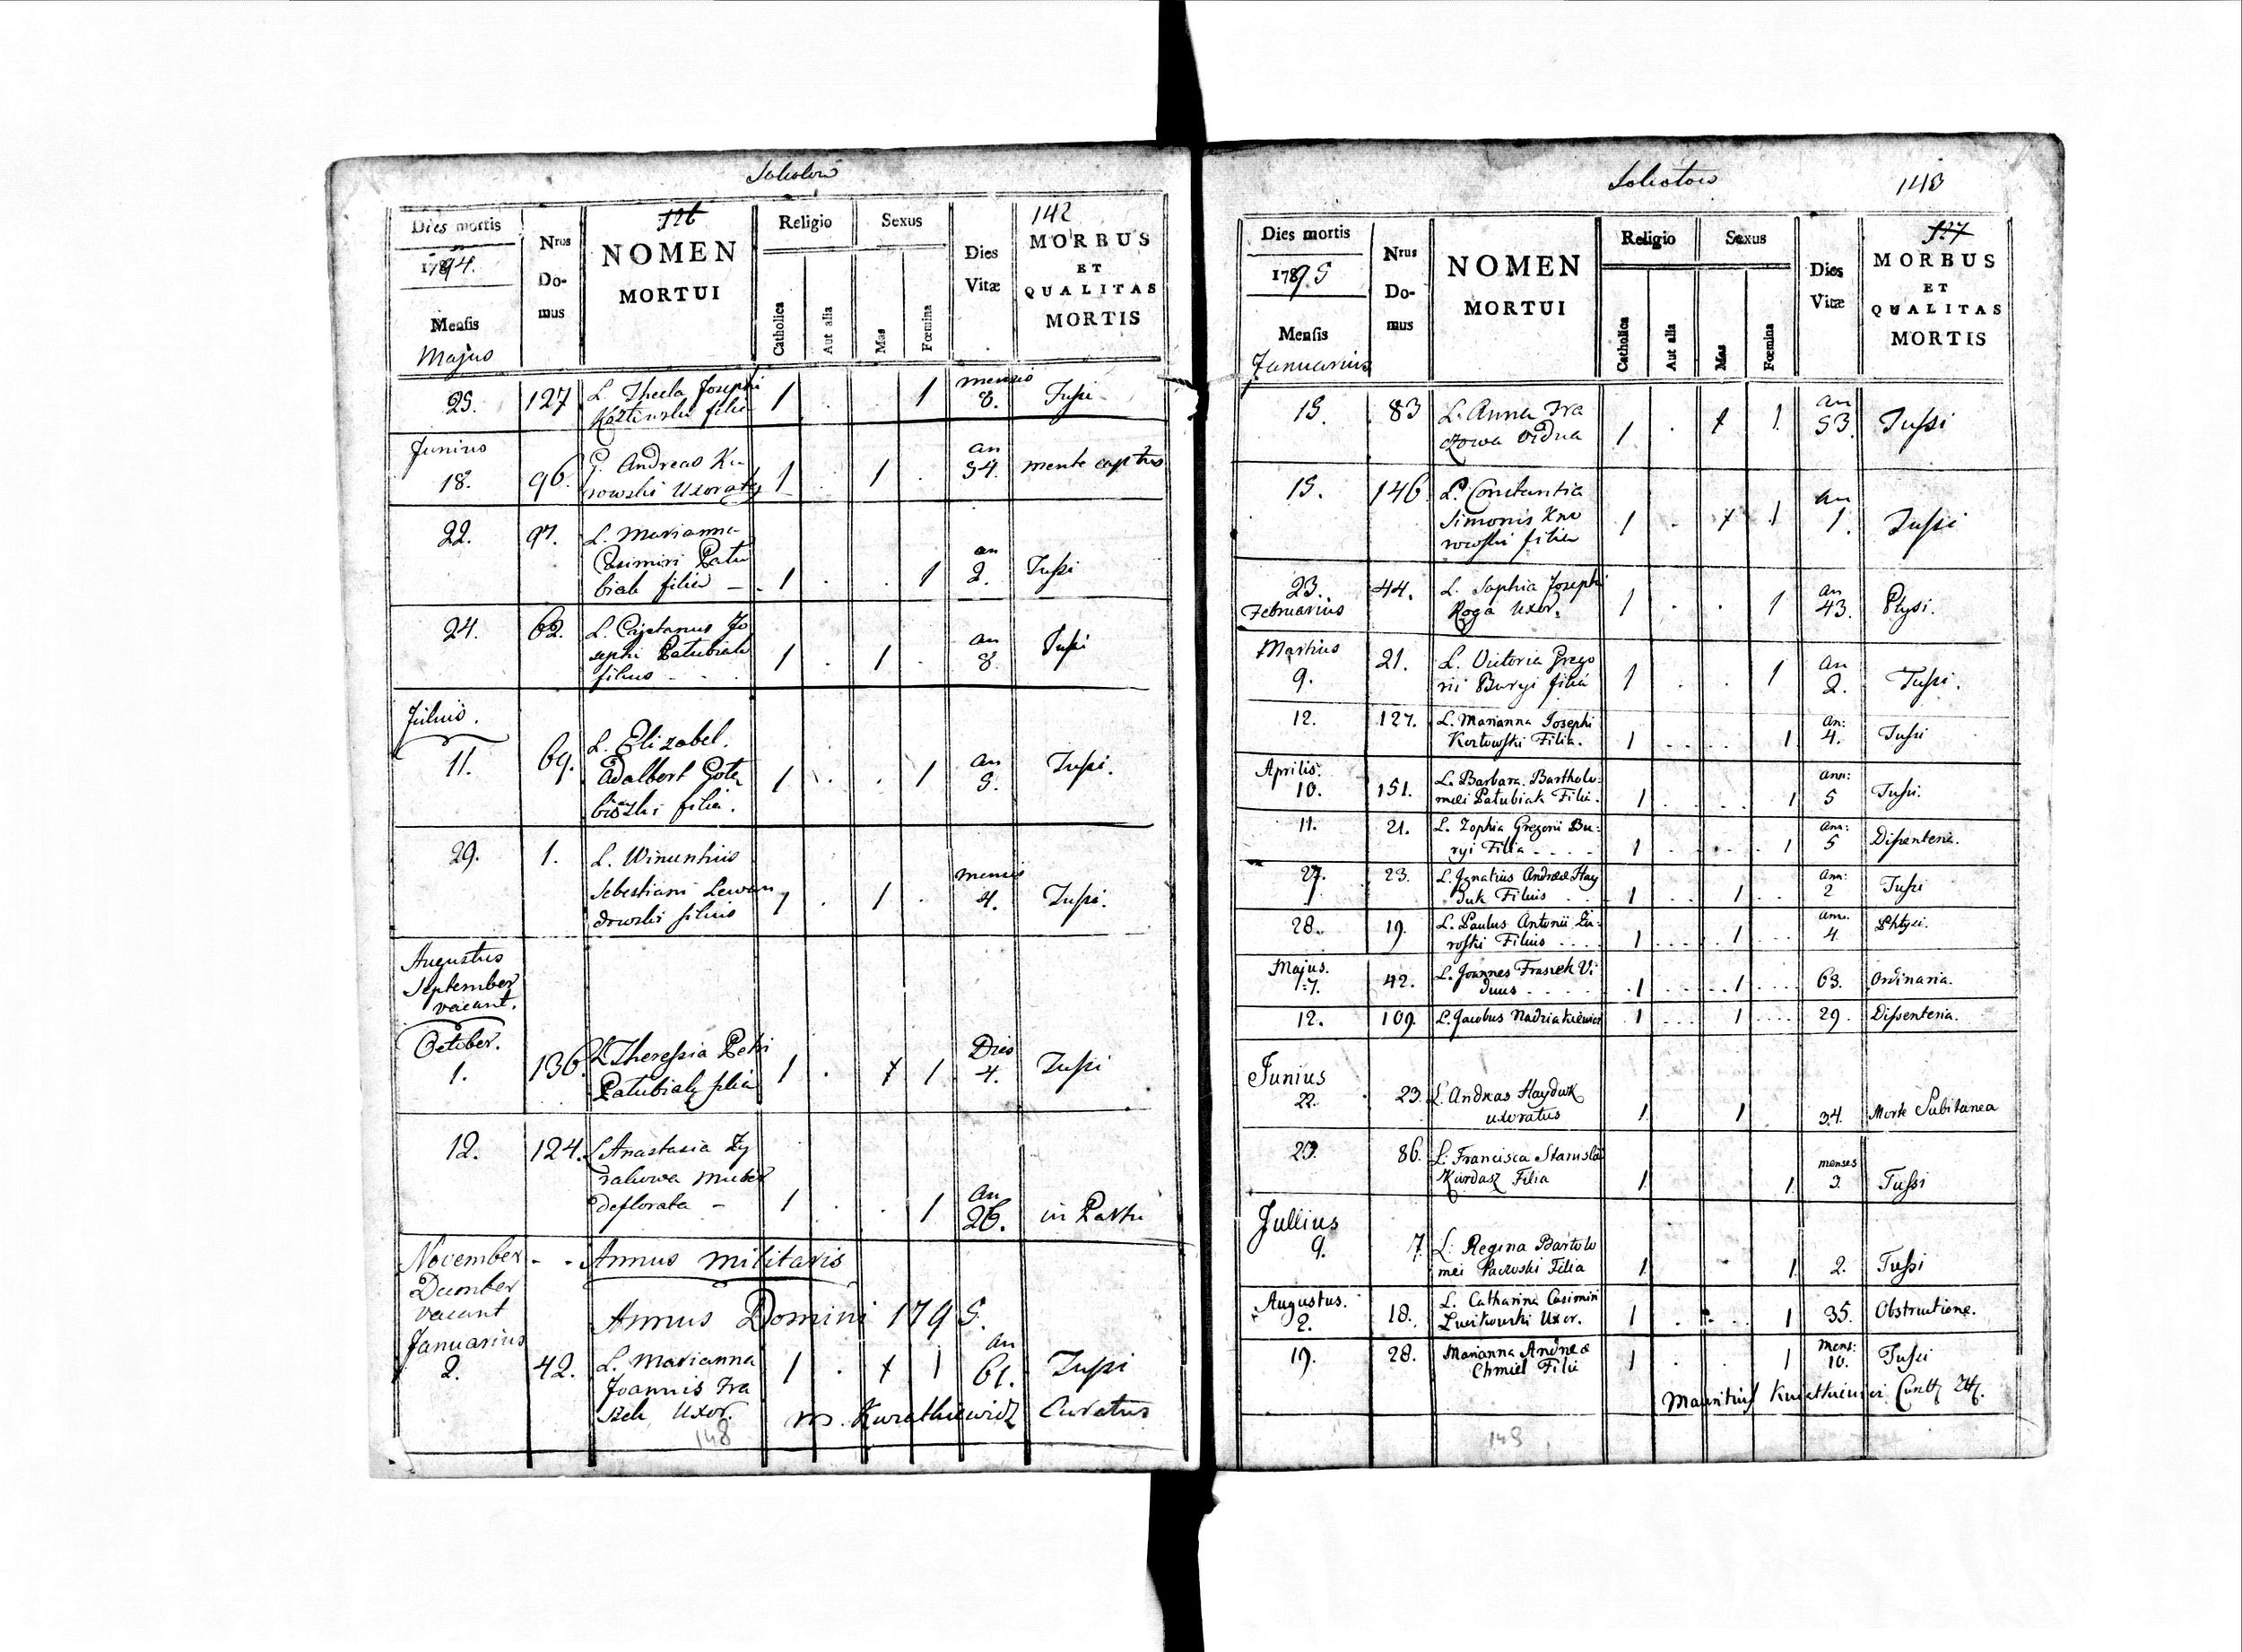 126
142
Dies mortis
1794.
Mensis
Majus
Nrus
Do-
mus
NOMEN
MORTUI
Religio
Catholica
Aut alia
Sexus
Mas
Fœmina
Dies
Vitæ
MORBUS
ET
QUALITAS
MORTIS
25. 127 L. Thecla Josephi 1 . . 1 mensis 8. Tussi
filia
Junius
18. 96. Andreas Ku 1 . 1 . an 54. mente captus
rowski Uxoratus
22. 97. L. Marianna
Casimiri Patu
biak filia 1 . . 1 an 2. Tussi
24. 62. L. Cajetanus Jo
sephi Patubiak 1 . 1 . an 8. Tussi
filius
Julius.
11. 69. L. Elizabet.
Adalbert 1 . . 1 an 5. Tussi.
filia.
29. 1. L.
Sebestiani Lewan 1 . 1 . mensis 4. Tussi.
dowski filius
Augustus
September
vacant.
October.
1. 136. L Theressia Petri 1 . 1 Dies 4. Tussi
Patubiak filia
12. 124. L Anastasia Zy
rakowa
deflorata - 1 . . 1 an 26. in Partu
November - - Annus militaris
December
vacant
Annus Domini 1795.
Januarius
2. 42. L. Marianna 1 . 1 an 61. Tussi
Joannis Fra
szek Uxor. Curatus
148
143
127
Dies mortis
1795
Mensis
Januarius
Nrus
Do-
mus
NOMEN
MORTUI
Religio
Catholica
Aut alia
Sexus
Mas
Fœmina
Dies
Vitæ
MORBUS
ET
QUALITAS
MORTIS
15. 83 L. Anna Fra 1 . 1 an 53. Tussi
czowa vidua
15. 146. L. Constantia
Simonis Ku 1 . 1 an 1. Tussi
rowski filia
23. 44. L. Sophia Josephi 1 . . 1 an 43. Ptysi.
Februarius Roga Uxor.
Martius
9. 21. L. Victoria Grego 1 . . 1 an 2. Tussi.
rii Buryi filia
12. 127. L. Marianna Josephi
Kozlowski Filia. 1 1 an: 4. Tussi
Aprilis.
10. 151. L. Barbara Bartholo:
mei Patubiak Filia. 1 1 ann: 5 Tussi.
11. 21. L. Zophia Gregorii Bu:
ryi Filia 1 1 Ann: 5 Dissenteria.
27. 23. L. Ignatius Andreæ Hay
duk Filius 1 1 Ann: 2 Tussi
28. 19. L. Paulus Antonii
Filius 1 1 ann. 4 Phtysi.
Majus.
17. 42. L. Joannes Fraszek Vi:
duus 1 1 63. Ordinaria.
12. 109. L. Jacobus Nadziakiewicz 1 1 29. Dissenteria.
Junius
22. 23. L. Andreas Hayduk
uxoratus 1 1 34. Morte Subitanea
29. 86. L. Francisca Stanislai
Kurdasz Filia 1 1 menses 3. Tussi
Jullius
9. 7. L. Regina Bartolo
mei Filia 1 1 2. Tussi
Augustus.
2. 18. L. Catharina Casimiri
Uxor. 1 1 35. Obstructione.
19. 28. Marianna Andreæ
Chmiel Filia 1 1 mens: 10. Tussi
Mauritius